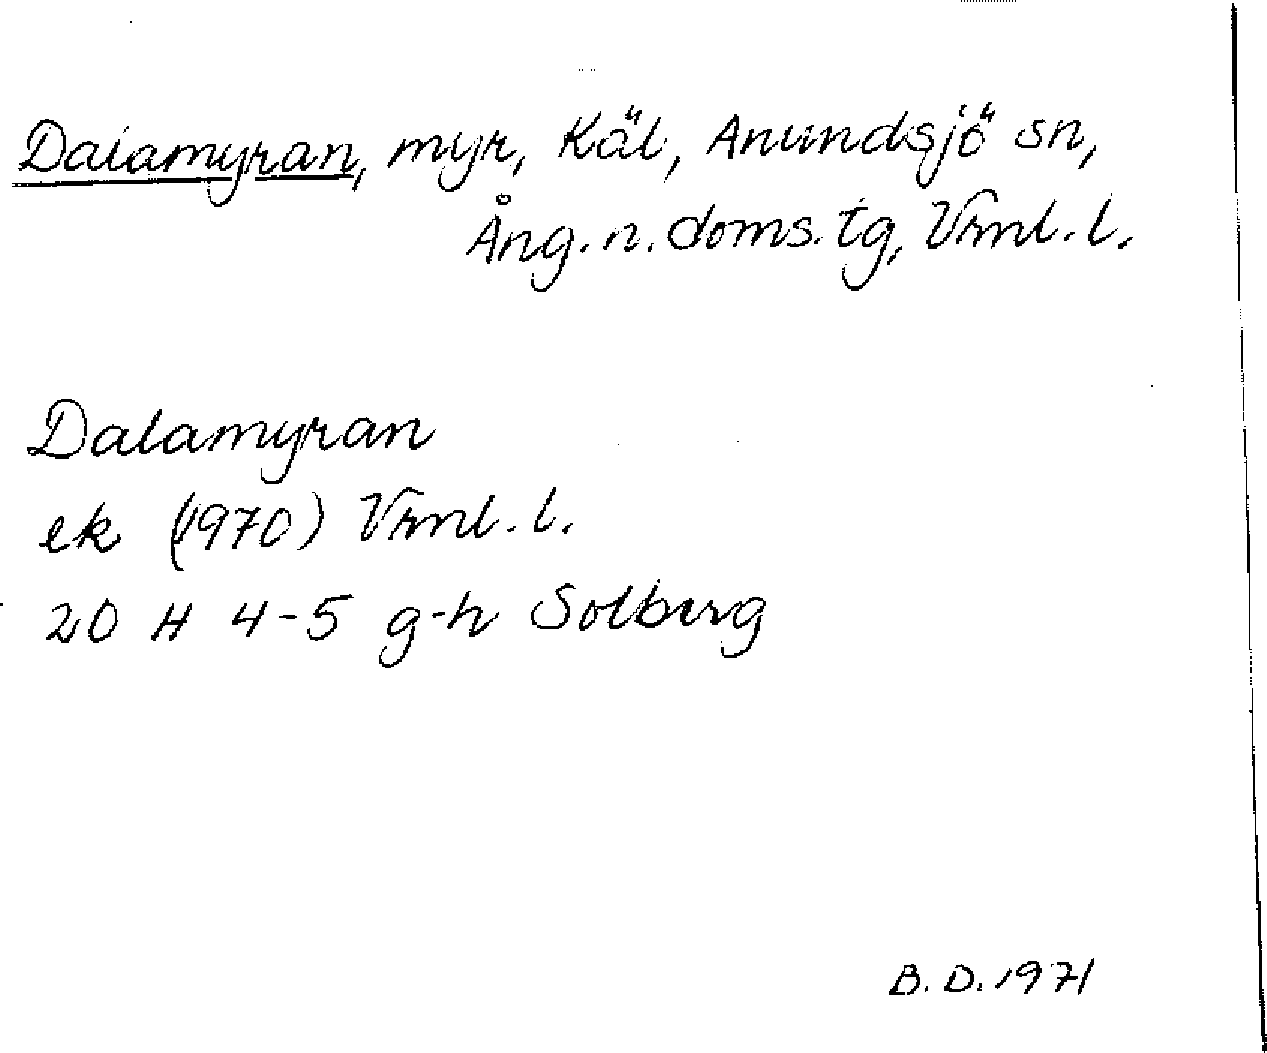 Dalamyran, myr, Käl, Anundsjö sn,
Ång. n. doms. tg, Vrnl. l.
Dalamyran
ek (1970) Vrnl. l.
20 H 4-5 g-h Solberg
B. D. 1971